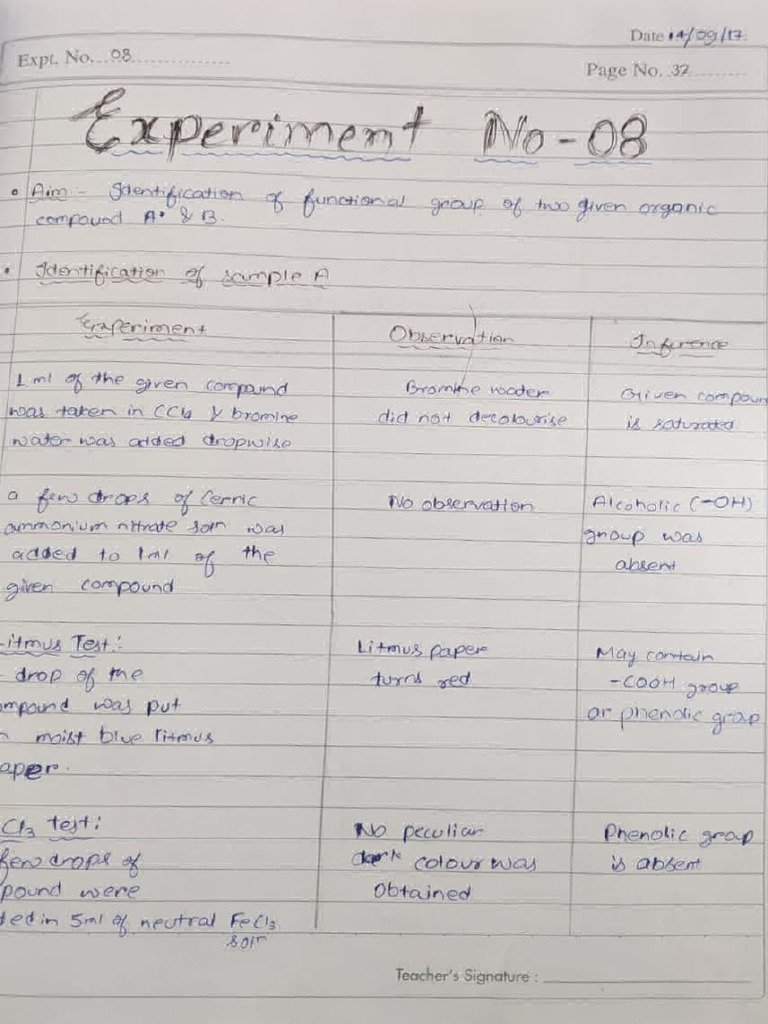 Date 14/09/17
Expt. No. 08
Page No. 37
Experiment No-08
• Aim - Identification of functional group of two given organic
compound A & B.
• Identification of sample A
Experiment
Observation
Inference
1 ml of the given compound
was taken in CCl4 & bromine
water was added dropwise
Bromine water
did not decolourise
Given compoun
is saturated
a few drops of Cerric
ammonium nitrate soln was
added to 1ml of the
given compound
No observation
Alcoholic (-OH)
group was
absent
itmus Test:
drop of the
mpound was put
n moist blue litmus
aper.
Litmus paper
turns red
May contain
-COOH group
or phenolic group
Cl3 test:
few drops of
pound were
ded in 5ml of neutral FeCl3
soln
No peculiar
dark colour was
obtained
Phenolic group
is absent
Teacher's Signature :